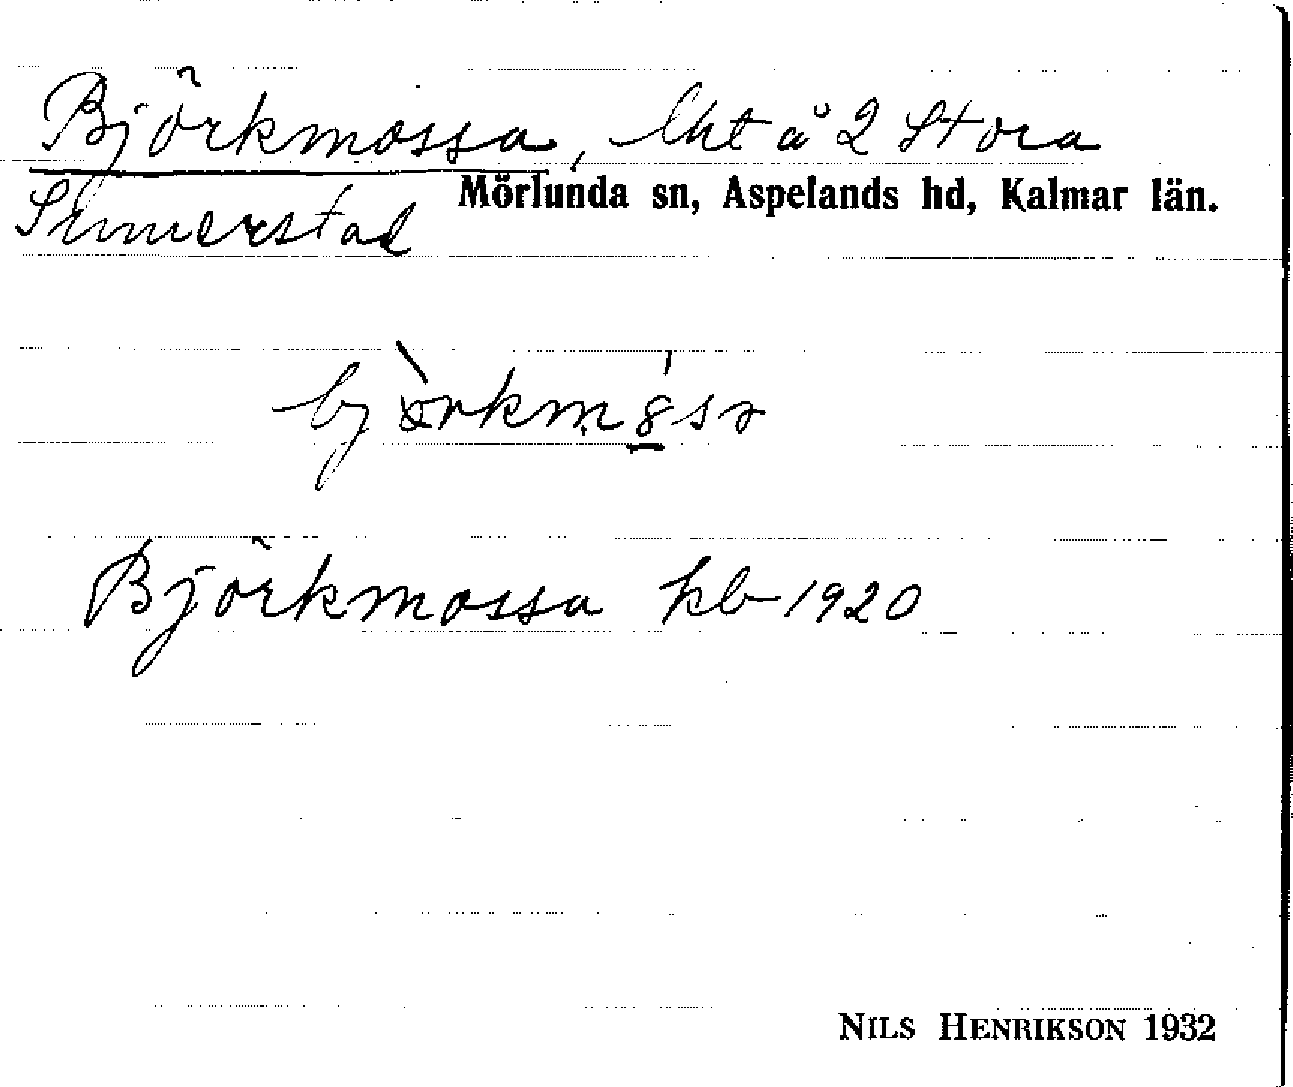 Björkmossa, lht å 2 Stora
Mörlunda sn, Aspelands hd, Kalmar län.
Simnerstad
Björkmossa kb 1920
NILS HENRIKSON 1932